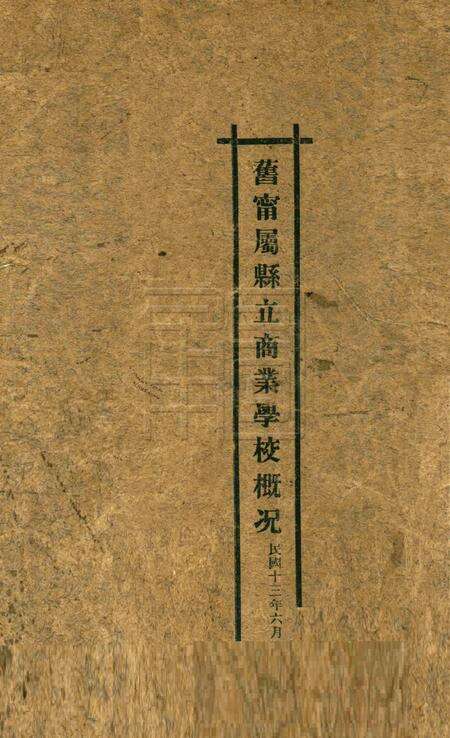 舊甯屬縣立商業學校概況
民國十三年六月